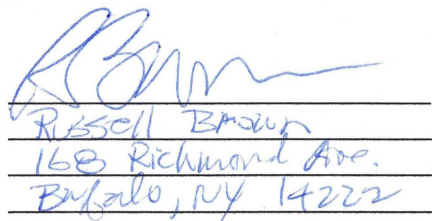 R Brown
Russell Brown
168 Richmond Ave.
Buffalo, NY 14222